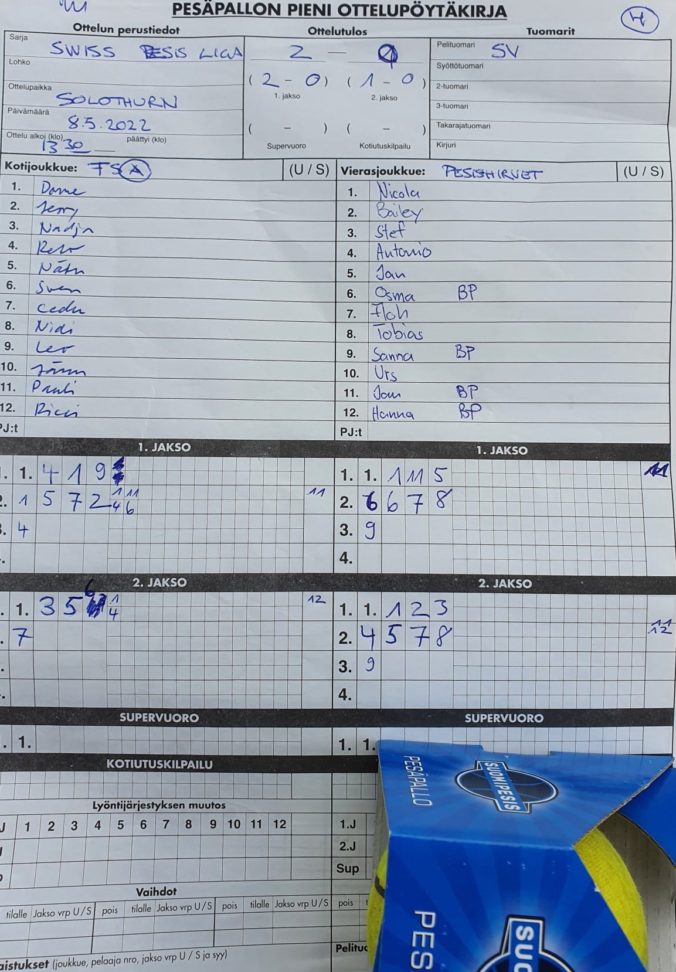 PESÄPALLON PIENI OTTELUPÖYTÄKIRJA
Ottelun perustiedot
Ottelutulos
Tuomarit
Sarja
SWISS PESIS LIGA
Lohko
Ottelupaikka
SOLOTHURN
Päivämäärä
8.5.2022
Ottelu alkoi (klo)
1330
päättyi (klo)
2 – 0
(2 – 0) (1 – 0)
1. jakso 2. jakso
( – ) ( – )
Supervuoro Kotiutuskilpailu
Pelituomari SV
Syöttötuomari
2-tuomari
3-tuomari
Takarajatuomari
Kirjuri
Kotijoukkue: TSA (U / S)
1. Dome
2. Jerry
3. Nadja
4. Reto
5. Nätu
6. Sven
7. Cedu
8. Nidi
9. Leo
10.
11. Pauli
12. Ricci
PJ:t
Vierasjoukkue: PESISHIRVET (U / S)
1. Nicola
2. Bailey
3. Stef
4. Antonio
5. Jan
6. Osma BP
7. Floh
8. Tobias
9. Sanna BP
10. Urs
11. Joni BP
12. Hanna BP
PJ:t
1. JAKSO
1. 4 1 9
1 5 7 2 11
4
1. JAKSO
1. 1. 1 11 5 11
2. 6 6 7 8
3. 9
4.
2. JAKSO
1. 3 5 6 12
7
2. JAKSO
1. 1. 1 2 3
2. 4 5 7 8 11 12
3. 9
4.
SUPERVUORO
1.
SUPERVUORO
1. 1.
KOTIUTUSKILPAILU
Lyöntijärjestyksen muutos
1 2 3 4 5 6 7 8 9 10 11 12
1.J
2.J
Sup
Vaihdot
tilalle Jakso vrp U / S pois tilalle Jakso vrp U / S pois tilalle Jakso vrp U / S pois
(joukkue, pelaaja nro, jakso vrp U / S ja syy)
PESÄPALLO
SUOMI PESIS